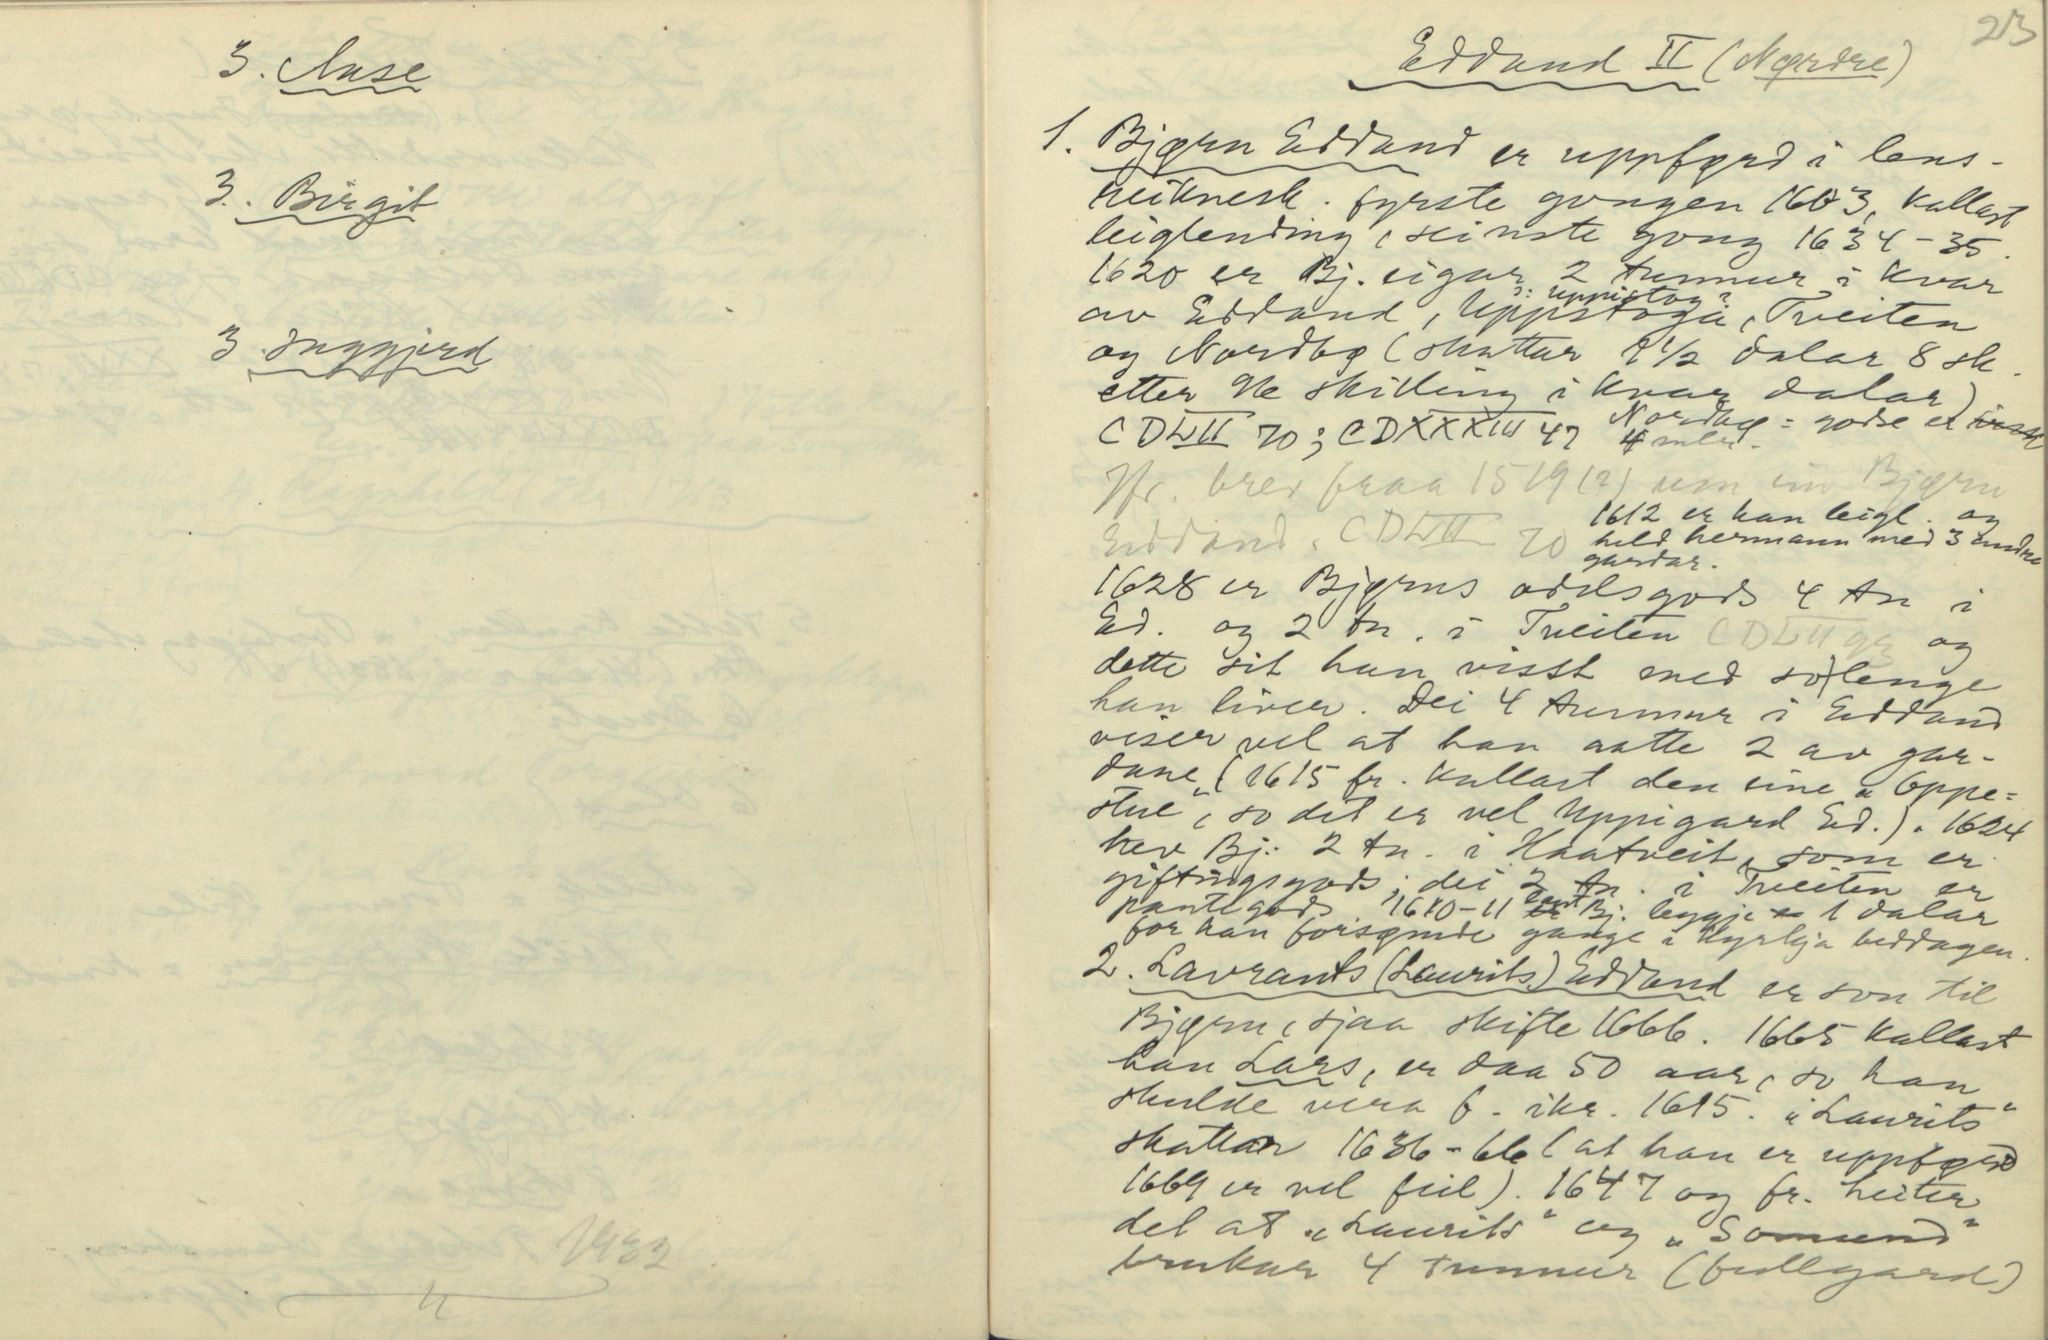 3. Aase
3. Birgit
3. Inggjerd
1932
23
Eddand II (Nørdre)
1. Bjørn Eddand er uppførd i lens-
reiknesk. fyrste gongen 1603, kallast
leiglending, seinste gong 1634-35.
1620 er Bj. eigar 2 tunnur i kvar
ɔ: uppistog
av Eddand, Uppstoga, Tveiten
og Nordbø (skattar 1½ dalar 8 sk.
etter 16 skilling i kvar dalar)
CDLII 70; CDXXXIII 47 Nordbø = godse er
4 mler.
Jfr. brev fraa 1519 (?) um ein Bjørn
Eddand, CDLII 70
1612 er han leigl. og
held hermann med 3 andre
gardar.
1628 er Bjørns odelsgods 4 tn i
Ed. og 2 tn. i Tveiten CDLII 93 og
dette sit han visst med so lenge
han liver. Dei 4 tunnur i Eddand
viser vel at han aatte 2 av gar-
dane (1615 fr. kallast den eine "Oppe=
stue", so det er vel Uppigard Ed.). 1624
hev Bj. 2 tn. i Haatveit, som er
giftingsgods; dei 2 tn. i Tveiten er
pantegods. 1610-11 Bj. leggje 1 dalar
for han forsømde gange i Kyrkja beddagen.
2. Lavrants (Laurits) Eddand er son til
Bjørn, sjaa skifte 1666. 1665 kallast
han Lars, er daa 50 aar, so han
skulde vera f. ikr. 1615. "Laurits"
skattar 1636-66 (at han er uppførd
1669 er vel feil). 1647 og fr. heiter
det at "Laurits" og "Somund"
brukar 4 tunnur (fullgard)